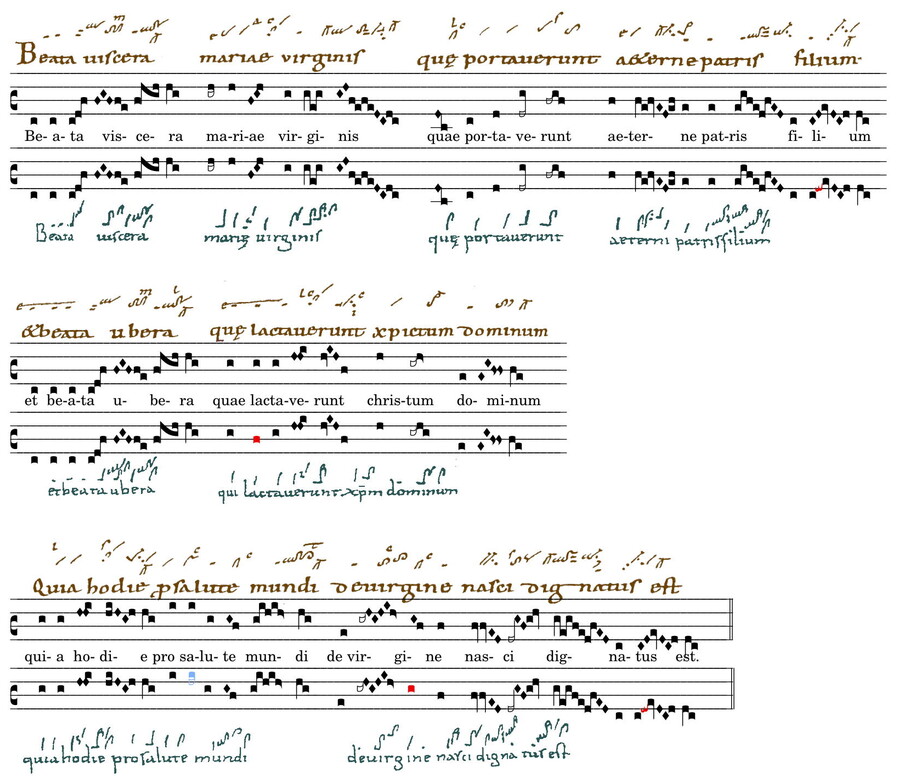 Beata uiscera mariae virginis quę portauerunt aeterne patris filium.
Be- a- ta vis- ce- ra ma-ri-ae vir- gi- nis quae por-ta- ve- runt ae-ter- ne pat-ris fi- li- um
Beata uiscera marię uirginis quę portauerunt aeterni patris filium
&beata ubera quę lactauerunt xpictum dominum
et be-a-ta u- be- ra quae lacta-ve- runt chris-tum do- mi-num
et beata ubera qui lactauerunt xp̄m dominum
Quia hodie p salute mundi deuirgine nasci dignatus est
qui- a ho- di- e pro sa-lu- te mun- di de vir- gi- ne nas- ci dig- na- tus est.
quia hodie pro salute mundi deuirgine nasci dignatus est